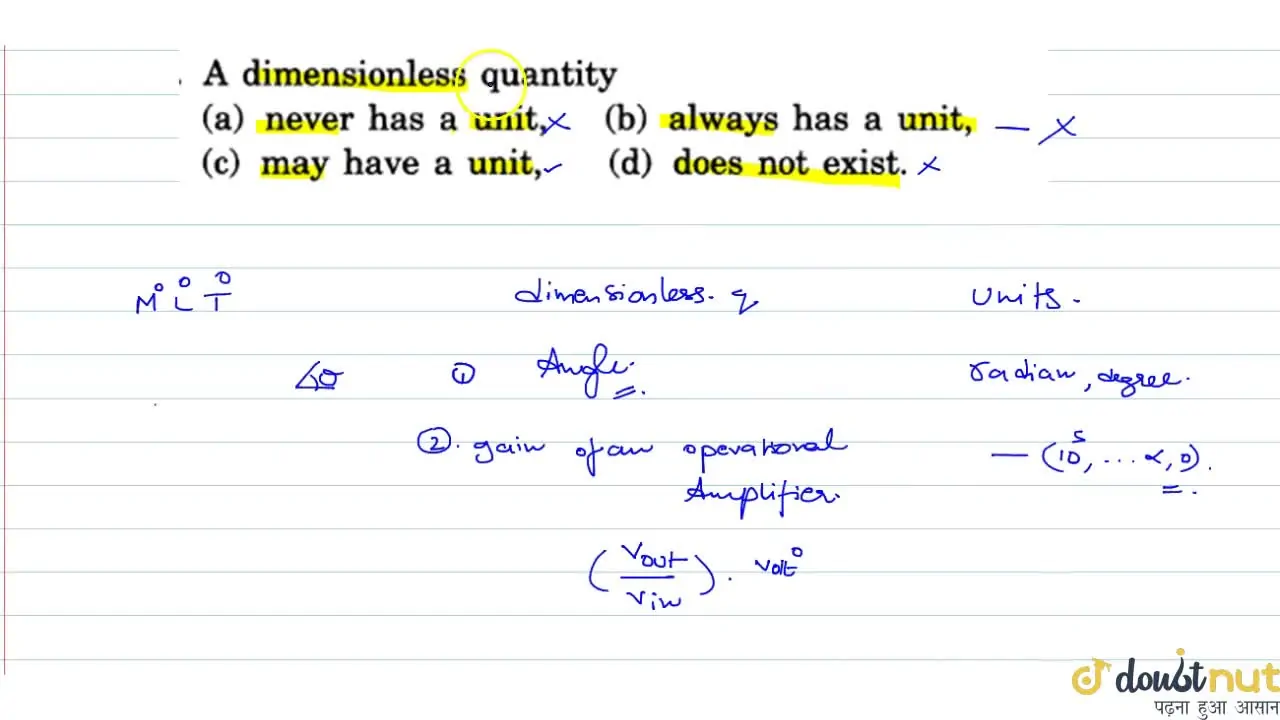 . A dimensionless quantity
(a) never has a unit, × (b) always has a unit, — ×
(c) may have a unit, ✓ (d) does not exist. ×
M⁰ L⁰ T⁰ dimensionless. q Units.
① Angle. radian, degree.
②. gain of an operational — (10⁵, ... ∝, 0).
Amplifier.
(Vout/Vin). Volt⁰
doubtnut
पढ़ना हुआ आसान